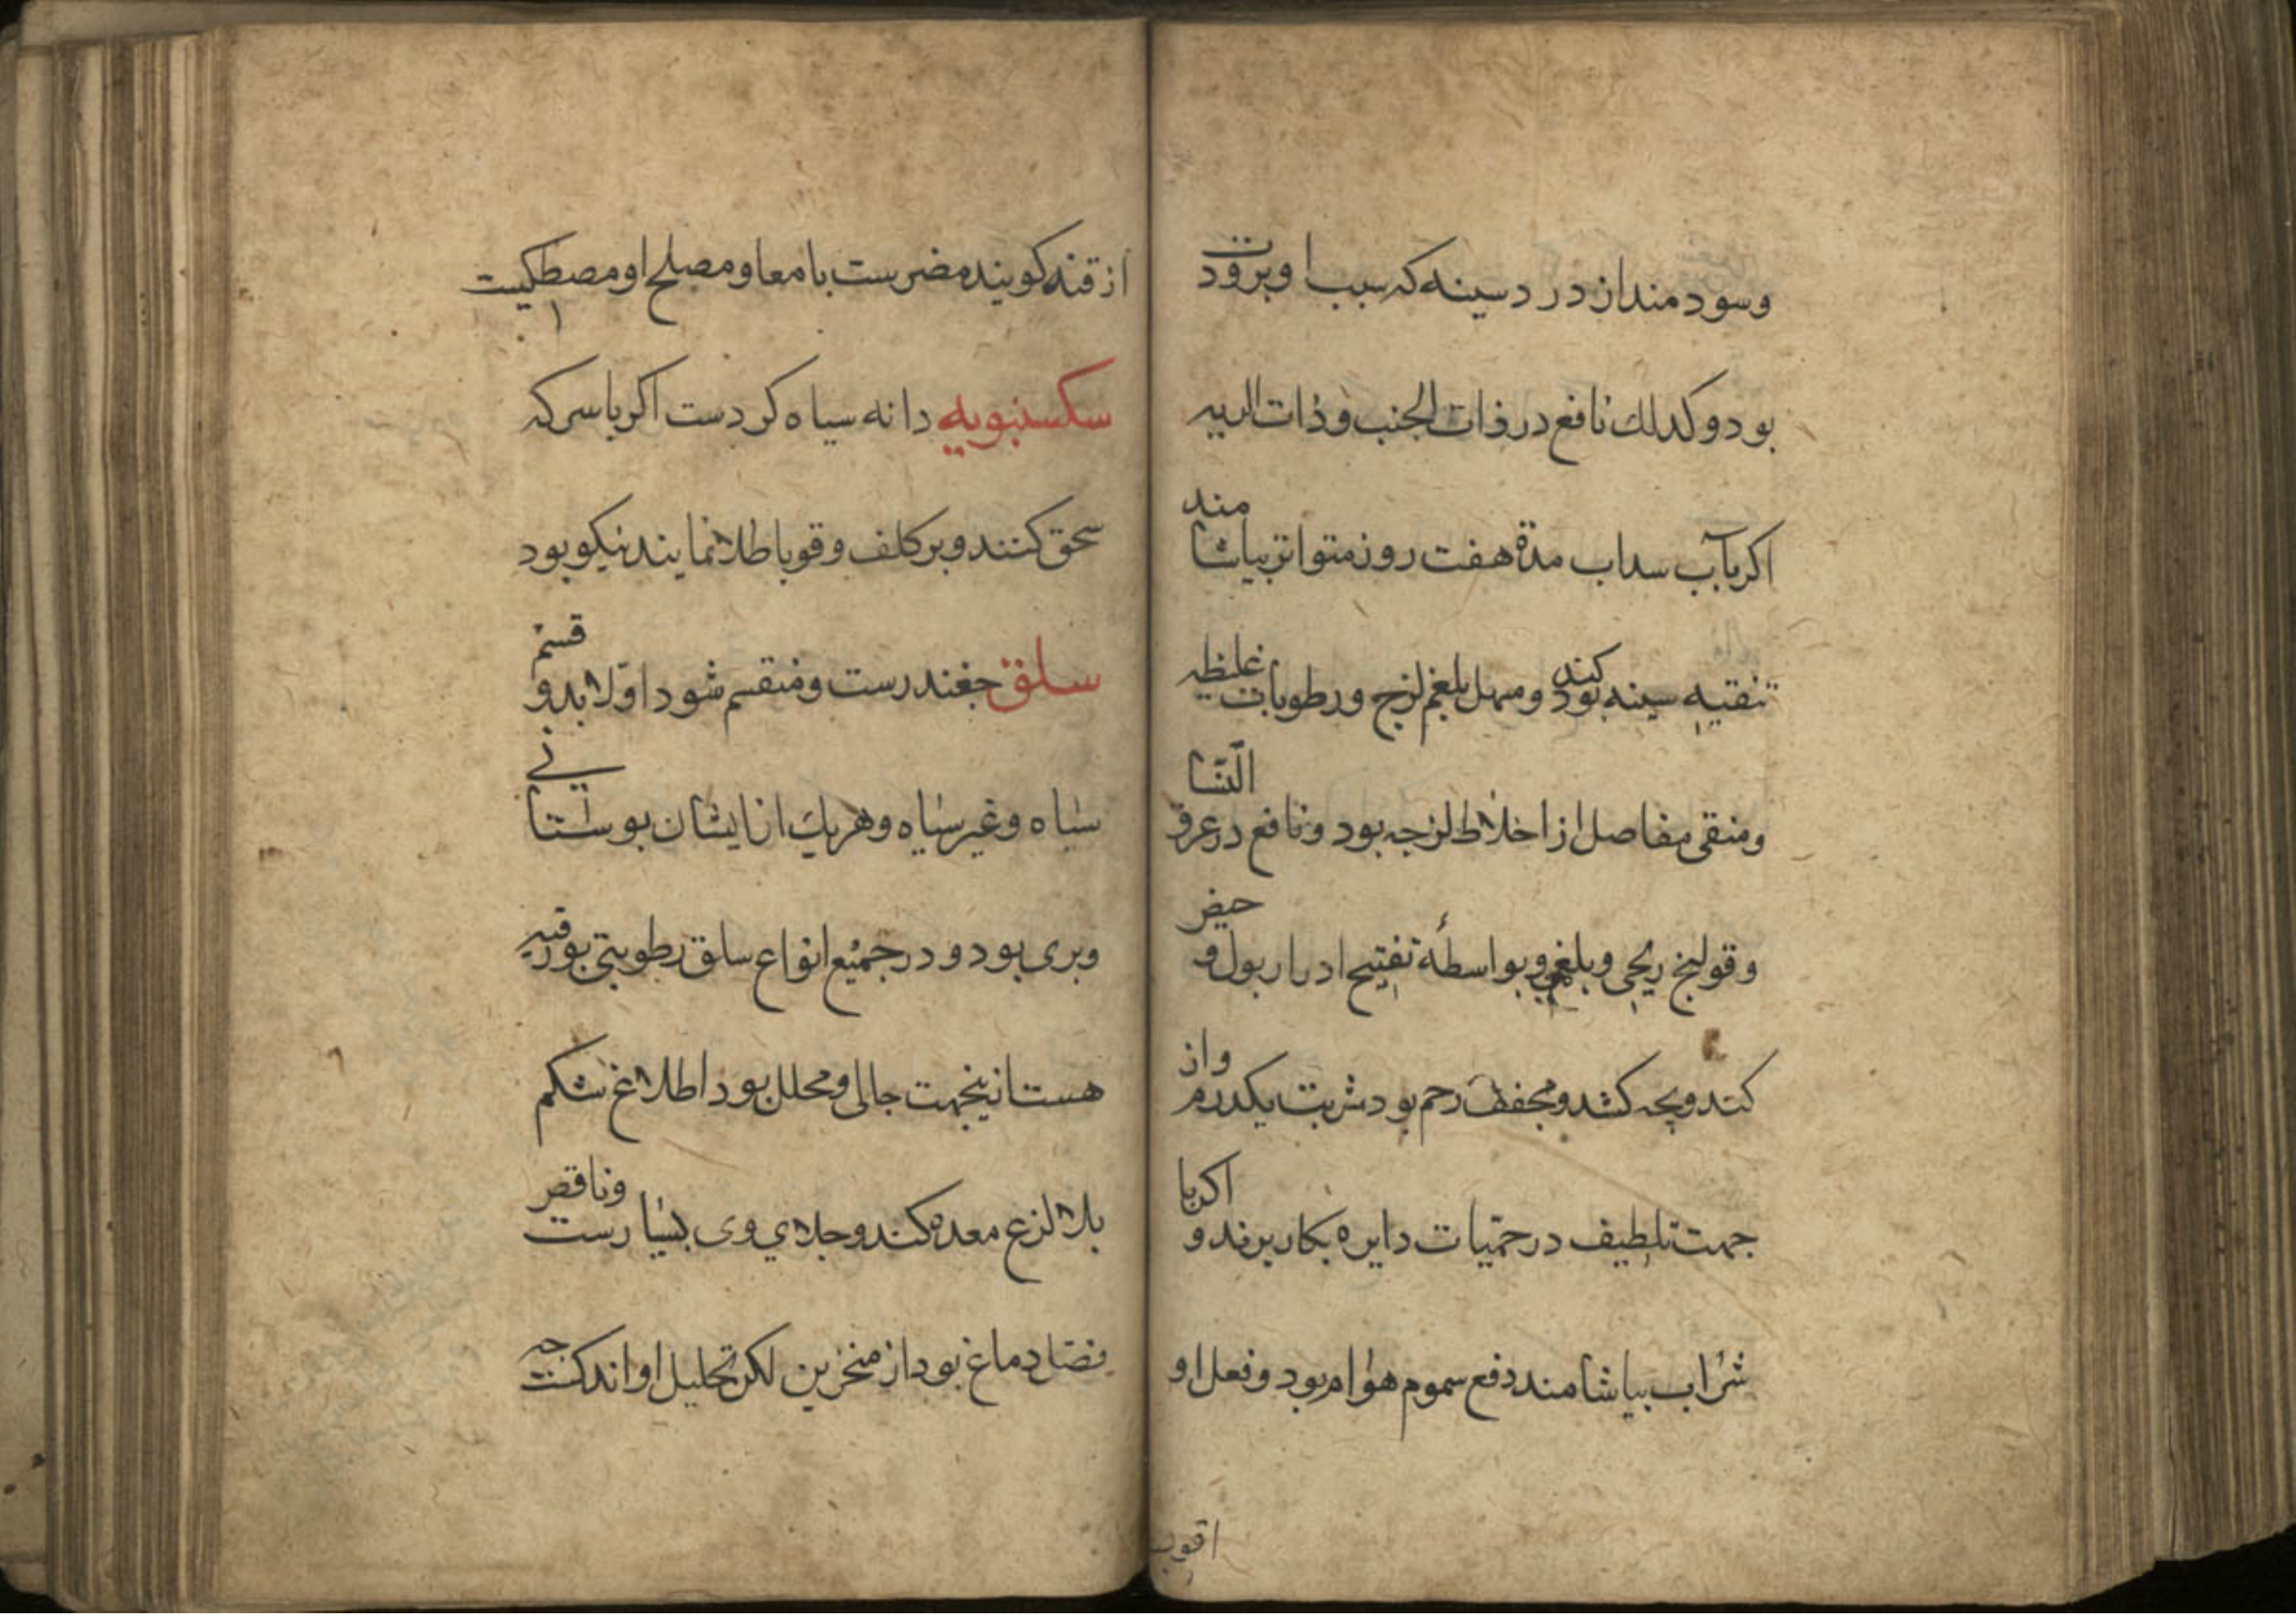 وسودمندان در دسینه که سبب او برودت
بود و کذلك نافع در ذات الجنب و ذات الریه
اکر بآب سداب مدة هفت روز متواتر بیاشامند
تنقیه سینه بود کند و مسهل بلغم لزج و رطوبات غلیظه
و منقی مفاصل از اخلاط لزجه بود و نافع در عرق النسا
و قولنج ریحی و بلغمی و بواسطهٔ تفتیح ادرار بول و حیض
کند و بچه کشد و مجفف رحم بود شربت یکدرم و از
جهت تلطیف در حمّیات دایره بکار برند و اکر با
شراب بیاشامند دفع سموم هوام بود و فعل او
اقوی
از قنه کویند مضرست بامعا و مصلح او مصطکیست
سکسنبویه دانه سیاه کردست اکر با سرکه
سحق کنند و بر کلف و قوبا طلا نمایند نیکو بود
سلق جغندرست و منقسم شود اوّلا بدو قسم
سیاه و غیر سیاه و هریك از ایشان بوستانی
و بری بود و در جمیع انواع سلق رطوبتی بورقیه
هست ازینجهت جالی و محلل بود اطلاغ شکم
بلا لزع معده کند و جلای وی بسیارست و ناقص
فضل دماغ بود از منخرین لکن تحلیل او اندکست جه